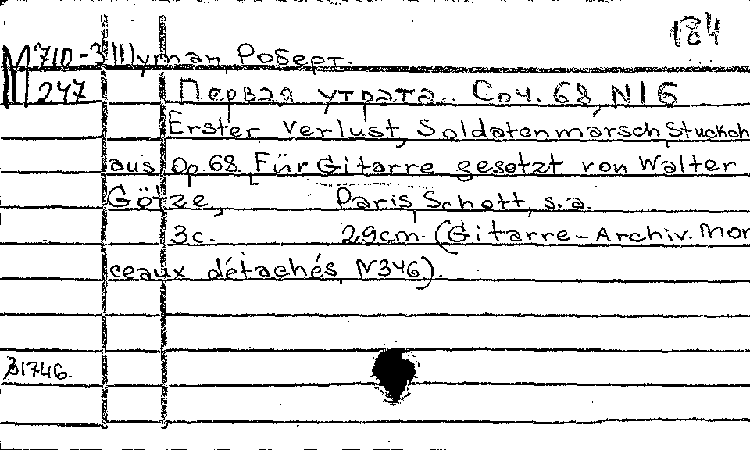 184
М 710-3 Шуман, Роберт.
247 Первая утрата. Соч. 68, N16
Erster Verlust, Soldatenmarsch, Stückch
aus Op. 68. Für Gitarre gesetzt von Walter
Götze, Paris, Schott, s.a.
3c. 29cm. (Gitarre-Archiv. Mor
ceaux détachés, N346).
31746